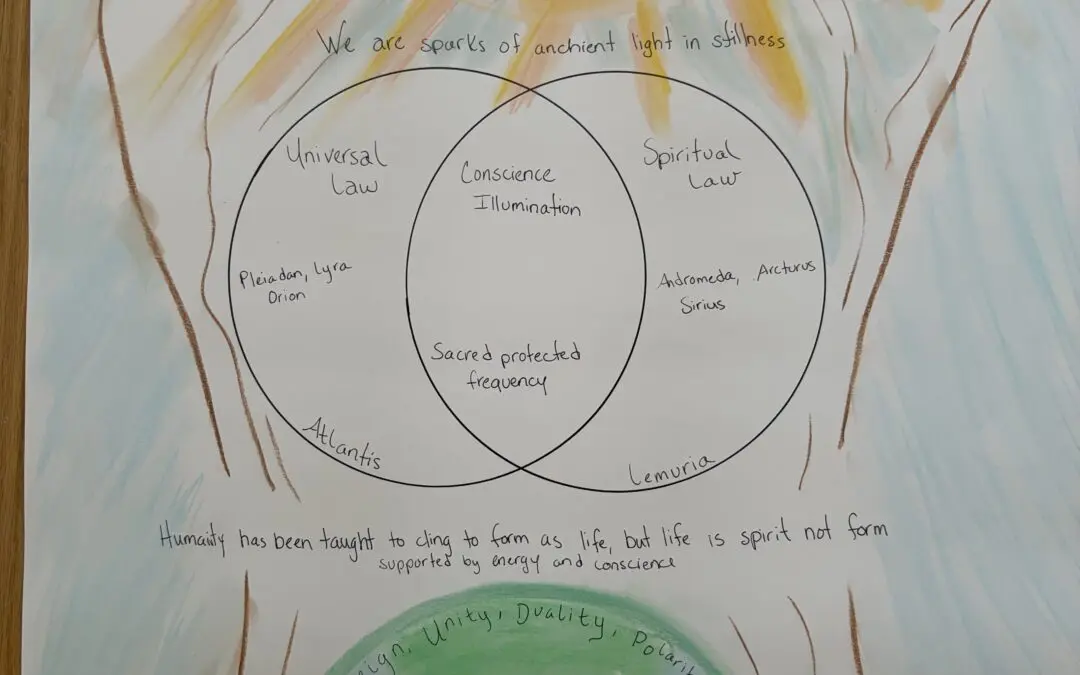 We are sparks of anchient light in stillness
Universal
Law
Conscience
Illumination
Spiritual
Law
Pleiadan, Lyra
Orion
Andromeda, Arcturus
Sirius
Sacred protected
frequency
Atlantis
Lemuria
Humaity has been taught to cling to form as life, but life is spirit not form
supported by energy and conscience
Unity, Duality,